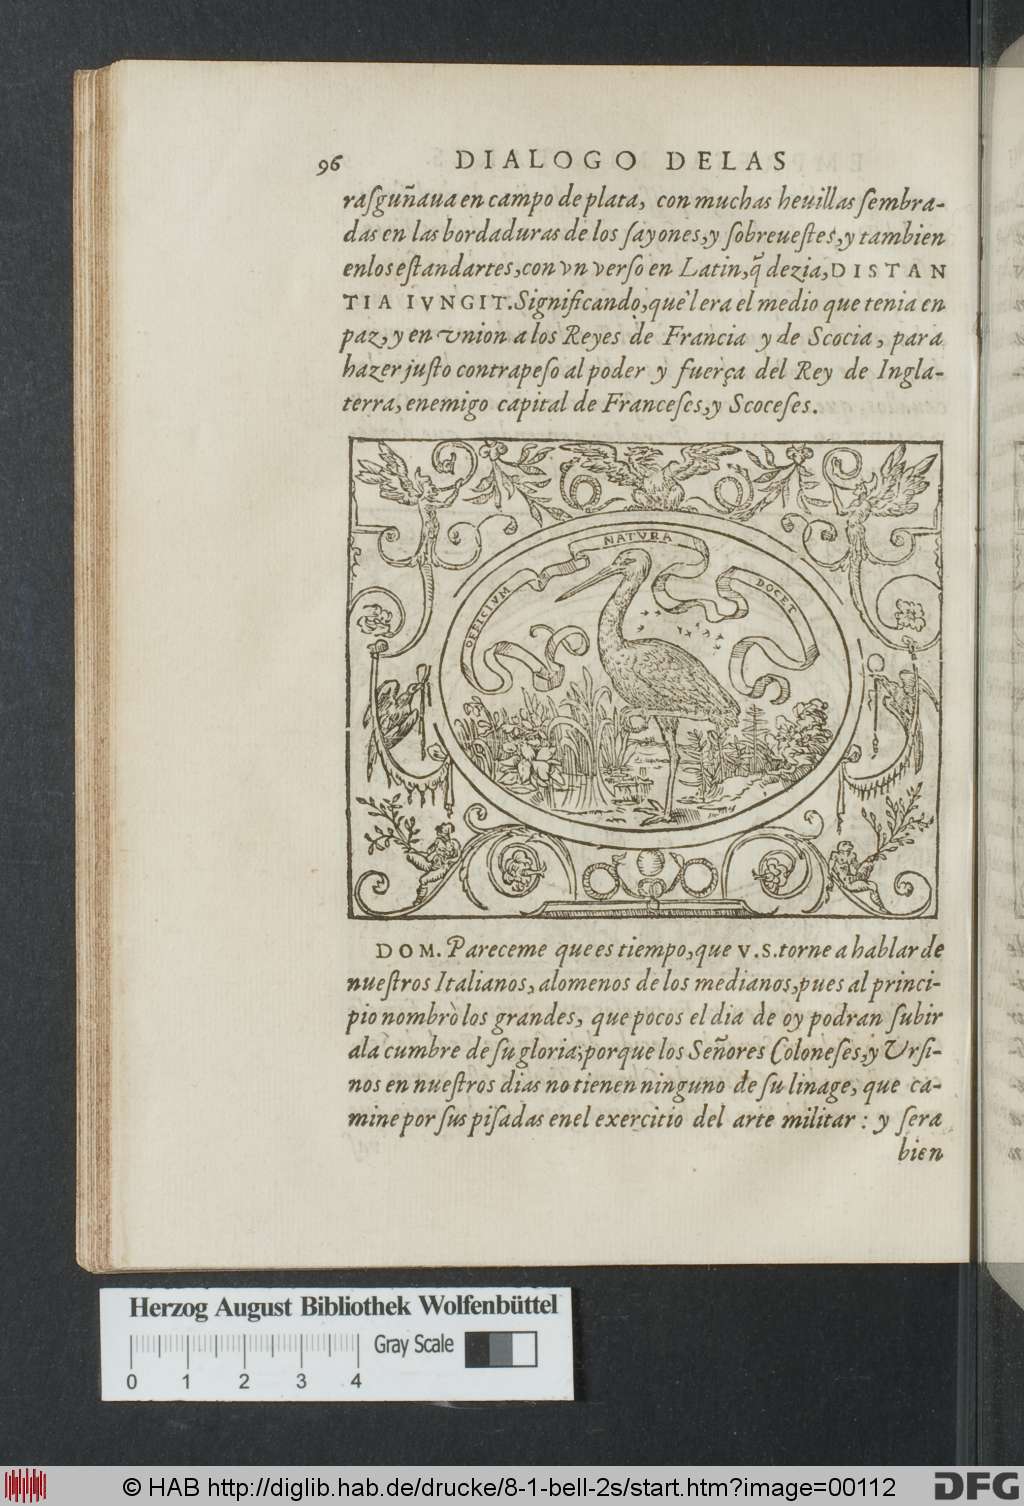 96 DIALOGO DELAS
rasguñaua en campo de plata, con muchas heuillas sembra-
das en las bordaduras de los sayones, y sobreuestes, y tambien
en los estandartes, con vn verso en Latin, q̃ dezia, DISTAN
TIA IVNGIT. Significando, què l era el medio que tenia en
paz, y en vnion a los Reyes de Francia y de Scocia, para
hazer justo contrapeso al poder y fuerça del Rey de Ingla-
terra, enemigo capital de Franceses, y Scoceses.
OFFICIVM NATVRA DOCET
DOM. Pareceme que es tiempo, que V.S. torne a hablar de
nuestros Italianos, alomenos de los medianos, pues al princi-
pio nombrò los grandes, que pocos el dia de oy podran subir
ala cumbre de su gloria; porque los Señores Coloneses, y Vrsi-
nos en nuestros dias no tienen ninguno de su linage, que ca-
mine por sus pisadas enel exercitio del arte militar: y sera
bien
Herzog August Bibliothek Wolfenbüttel
Gray Scale
0 1 2 3 4
© HAB http://diglib.hab.de/drucke/8-1-bell-2s/start.htm?image=00112
DFG